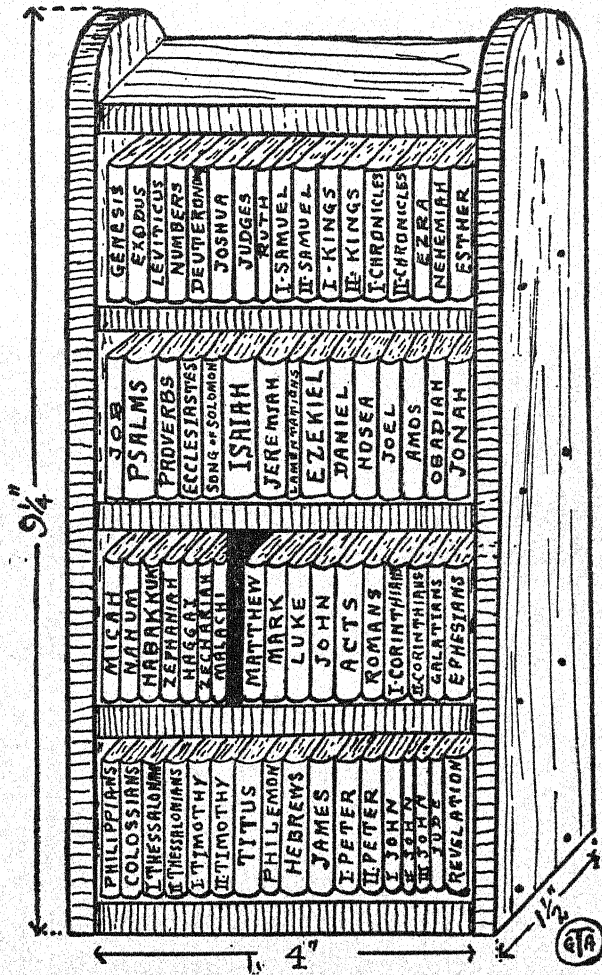 GENESIS
EXODUS
LEVITICUS
NUMBERS
DEUTERONO
JOSHUA
JUDGES
RUTH
I-SAMUEL
II-SAMUEL
I-KINGS
II-KINGS
I-CHRONICLES
II-CHRONICLES
EZRA
NEHEMIAH
ESTHER
JOB
PSALMS
PROVERBS
ECCLESIASTES
SONG OF SOLOMON
ISAIAH
JEREMIAH
LAMENTATIONS
EZEKIEL
DANIEL
HOSEA
JOEL
AMOS
OBADIAH
JONAH
MICAH
NAHUM
HABAKKUK
ZEPHANIAH
HAGGAI
ZECHARIAH
MALACHI
MATTHEW
MARK
LUKE
JOHN
ACTS
ROMANS
I-CORINTHIANS
II-CORINTHIANS
GALATIANS
EPHESIANS
PHILIPPIANS
COLOSSIANS
I THESSALONIAN
II THESSALONIANS
I-TIMOTHY
II-TIMOTHY
TITUS
PHILEMON
HEBREWS
JAMES
I-PETER
II-PETER
I JOHN
II JOHN
III JOHN
JUDE
REVELATION
9¼"
4"
1½"
GTA